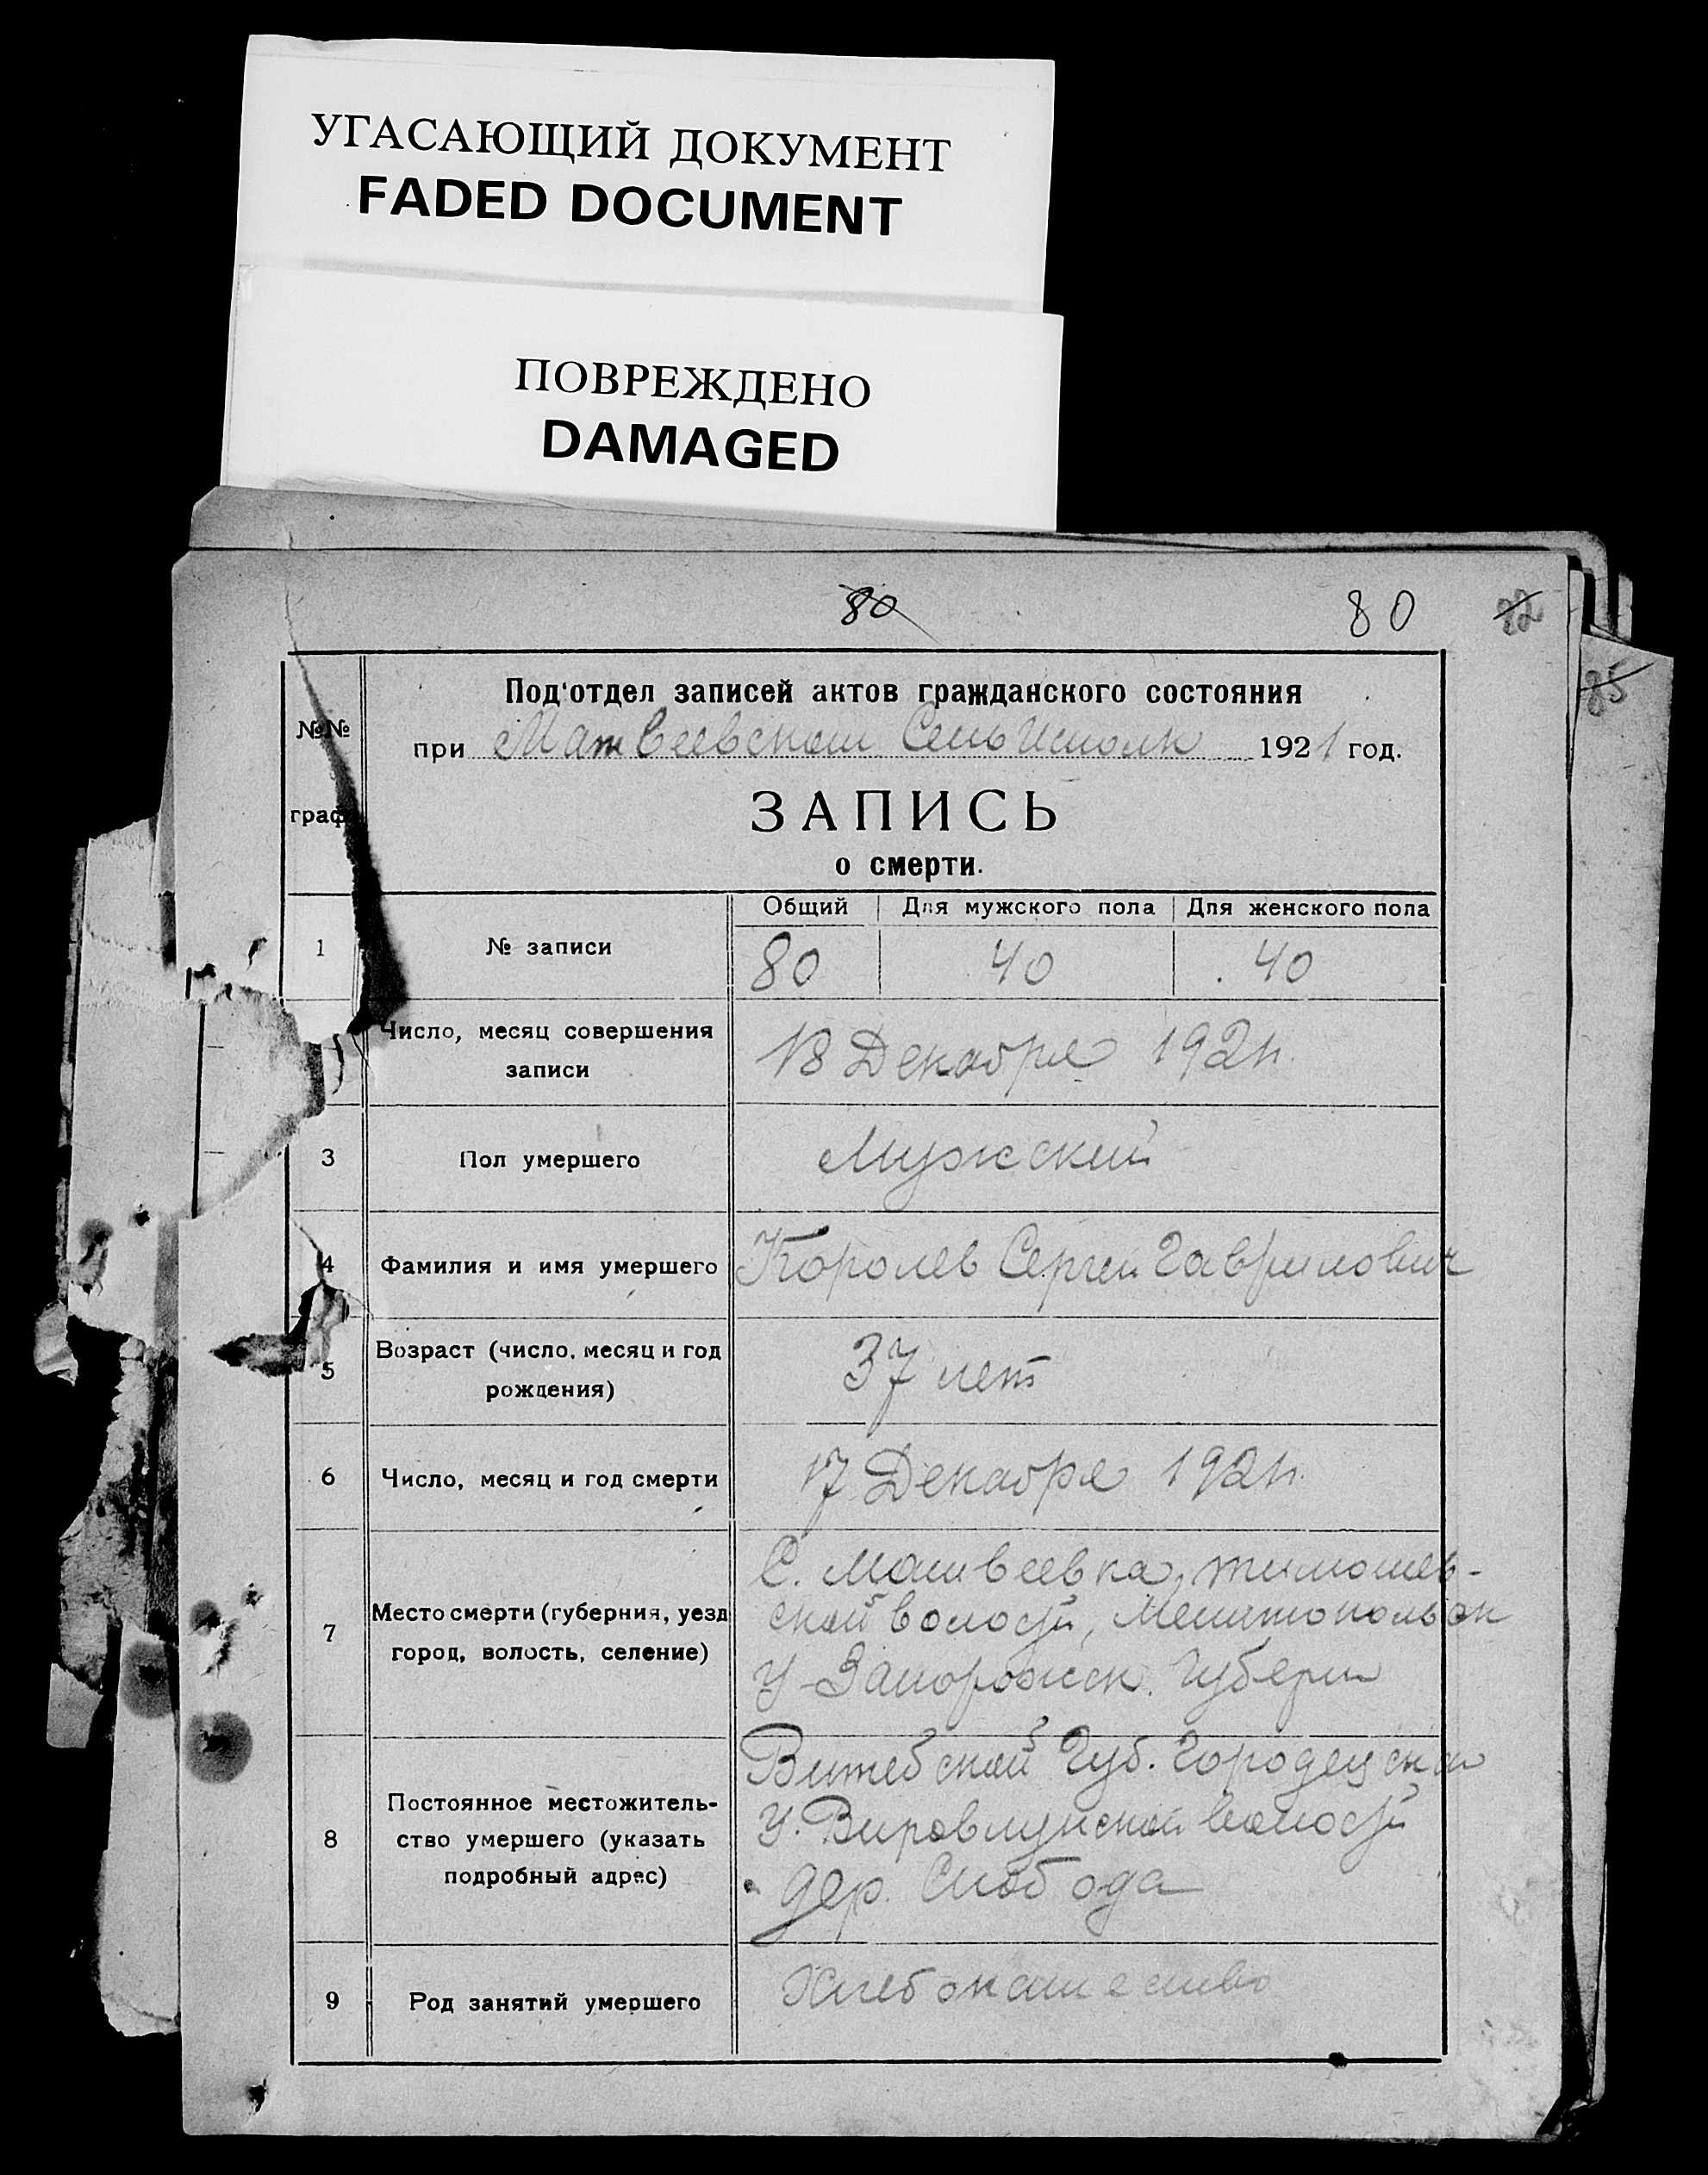 УГАСАЮЩИЙ ДОКУМЕНТ
FADED DOCUMENT
ПОВРЕЖДЕНО
DAMAGED
80 80 82
85
Под'отдел записей актов гражданского состояния
№№
при Матвеевском СельИсполк 1921 год.
граф
ЗАПИСЬ
о смерти.
Общий Для мужского пола Для женского пола
1 № записи 80 40 40
Число, месяц совершения
записи
18 Декабря 1921г.
3 Пол умершего Мужский
4 Фамилия и имя умершего Королев Сергей Гаврилович
5 Возраст (число, месяц и год
рождения)
37 лет
6 Число, месяц и год смерти 17 Декабря 1921г.
7 Место смерти (губерния, уезд
город, волость, селение)
С. Матвеевка, тимошев-
ской волости, Мелитопольск
У Запорожск. Губерни
8 Постоянное местожитель-
ство умершего (указать
подробный адрес)
Витебской Губ. Городецкой
У. волости
дер. Слобода
9 Род занятий умершего Хлебопашество